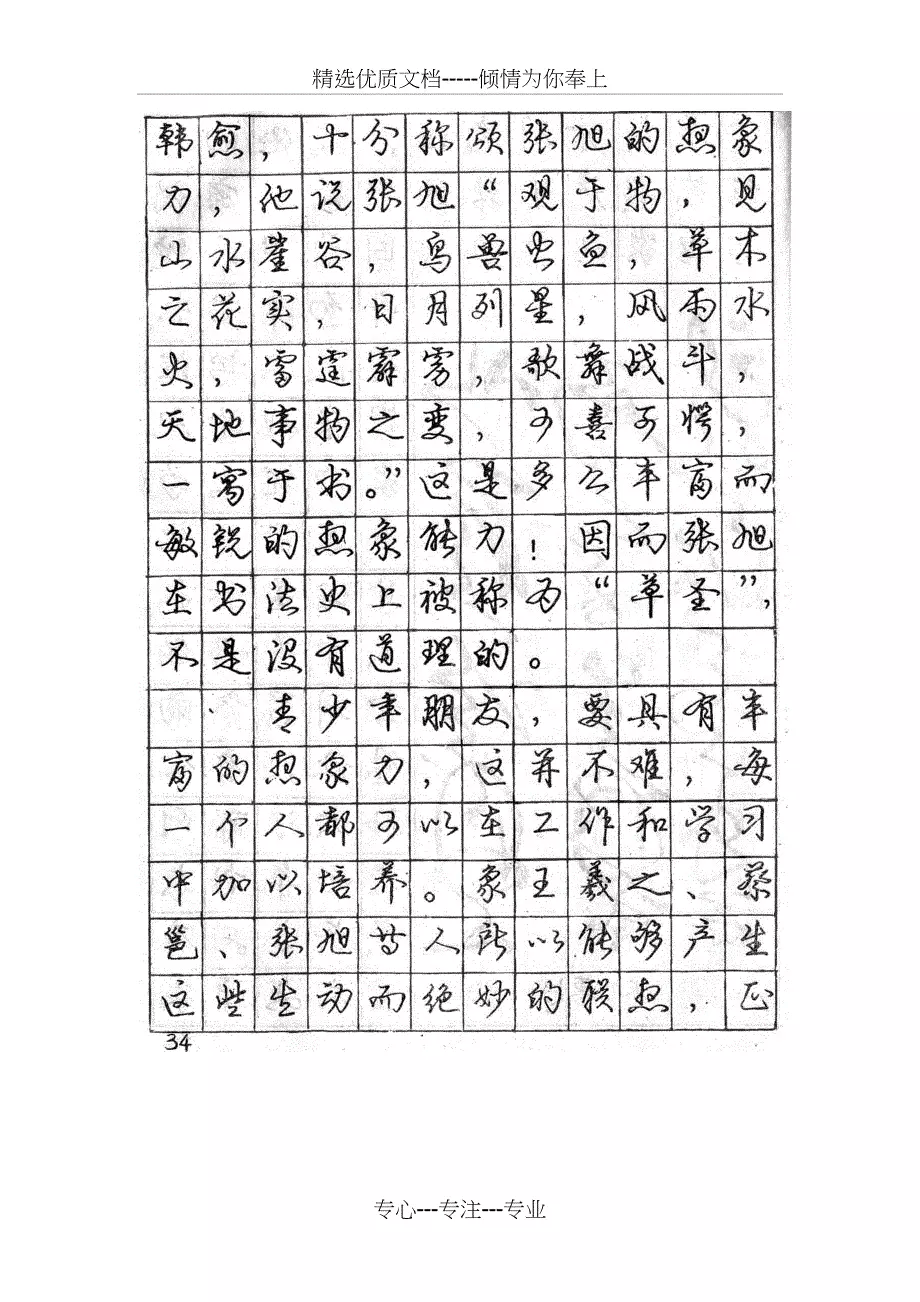 精选优质文档-----倾情为你奉上
韩愈，十分称颂张旭的想象
力，他说张旭“观于物，见
山水崖谷，鸟兽虫鱼，草木
之花实，日月列星，风雨水
火，雷霆霹雳，歌舞战斗，
天地事物之变，可喜可愕，
一寓于书。”这是多么丰富而
敏锐的想象能力！因而张旭
在书法史上被称为“草圣”，
不是没有道理的。
青少年朋友，要具有丰
富的想象力，这并不难，每
一个人都可以在工作和学习
中加以培养。象王羲之、蔡
邕、张旭等人所以能够产生
这些生动而绝妙的联想，正
34
专心---专注---专业